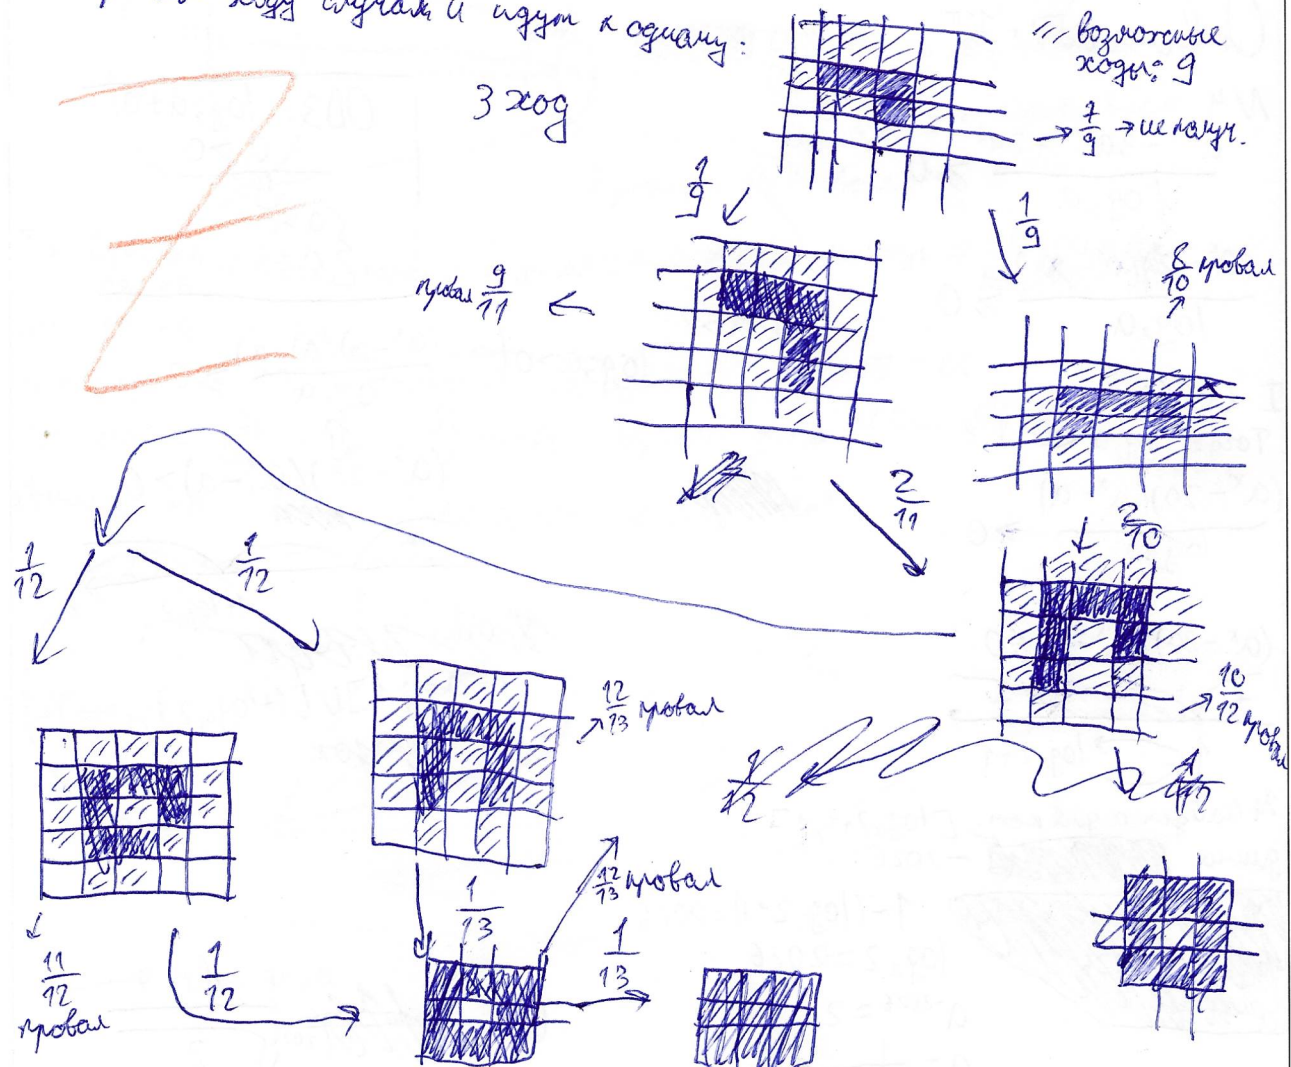 ходу случая и идут к одному:
возможные
ходы: 9
3 ход
→ 7/9 → не получ.
1/9
1/9
8/10 провал
провал 9/11
2/11
2/10
1/12
1/12
12/13 провал
10/12 провал
1/12
1/12
12/13 провал
1/13
1/13
11/12
провал
1/12